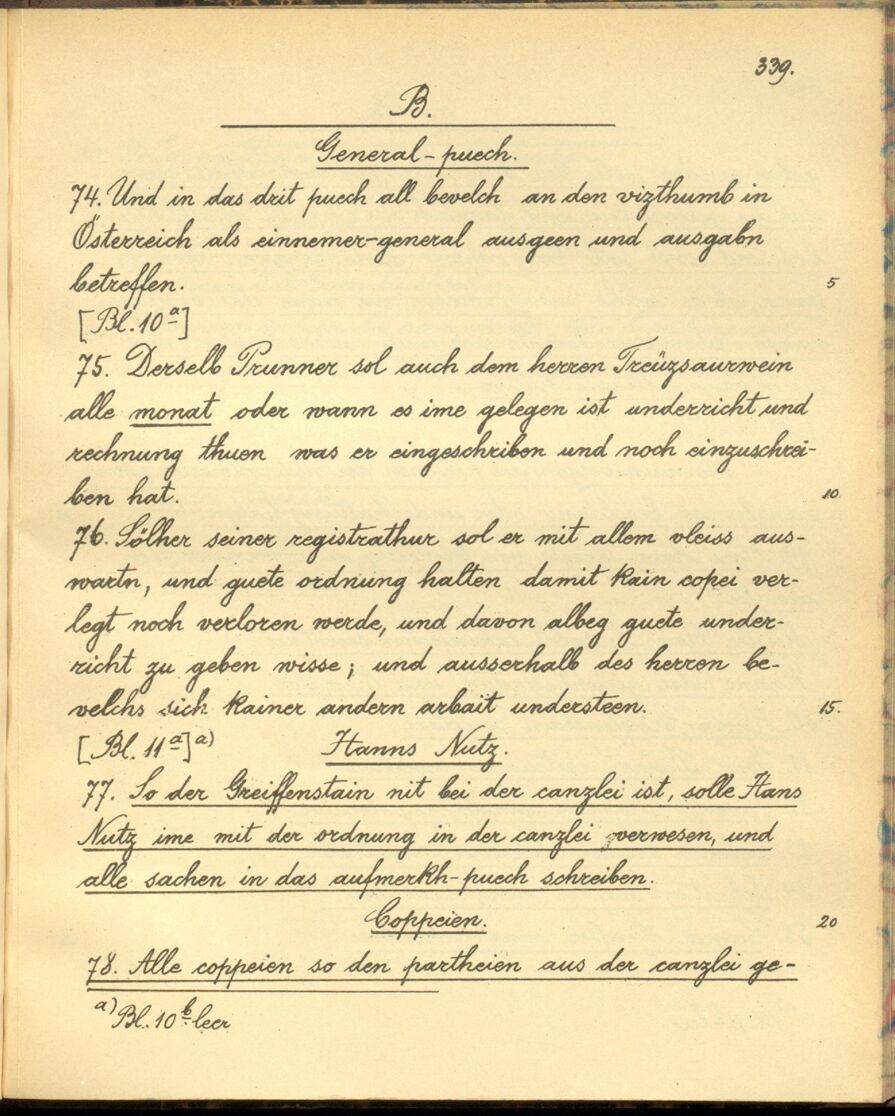 339.
B.
General-puech.
74. Und in das drit puech all bevelch an den vizthumb in
Österreich als einnemer-general ausgeen und ausgabn
betreffen.
5
[Bl. 10ª]
75. Derselb Prunner sol auch dem herren Treüzsaurwein
alle monat oder wann es ime gelegen ist underricht und
rechnung thuen was er eingeschriben und noch einzuschrei-
ben hat.
10
76. Sölher seiner registrathur sol er mit allem vleiss aus-
wartn, und guete ordnung halten damit kain copei ver-
legt noch verloren werde, und davon albeg guete under-
richt zu geben wisse; und ausserhalb des herren be-
velchs sich kainer andern arbait understeen.
15.
[Bl. 11ª] a) Hanns Nutz.
77. So der Greiffenstain nit bei der canzlei ist, solle Hans
Nutz ime mit der ordnung in der canzlei verwesen, und
alle sachen in das aufmerkh-puech schreiben.
Coppeien.
20
78. Alle coppeien so den partheien aus der canzlei ge-
a) Bl. 10 b leer